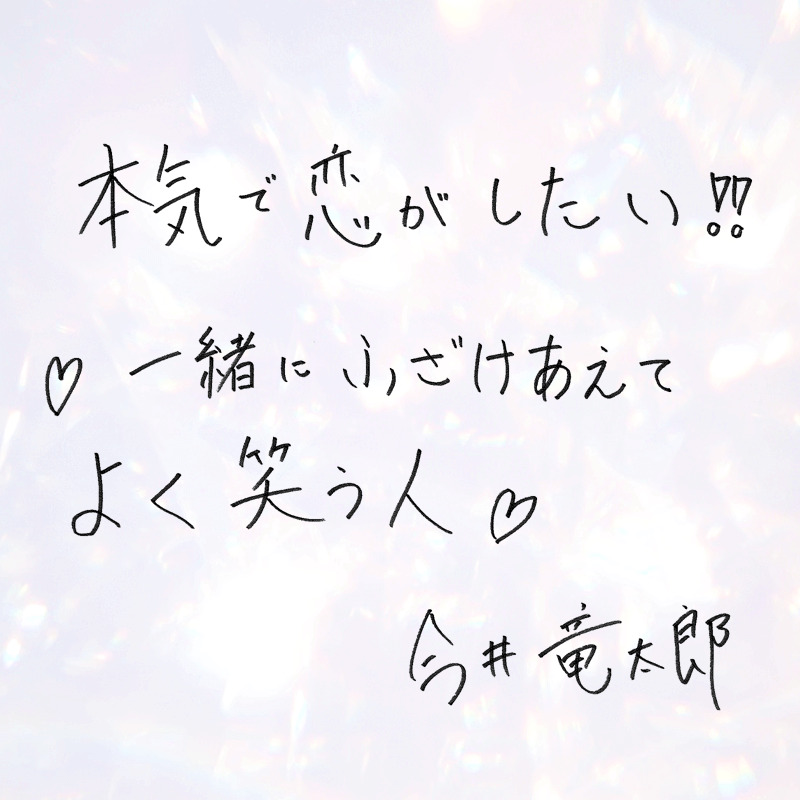 本気で恋がしたい!!
♡一緒にふざけあえて
よく笑う人♡
今井竜太郎